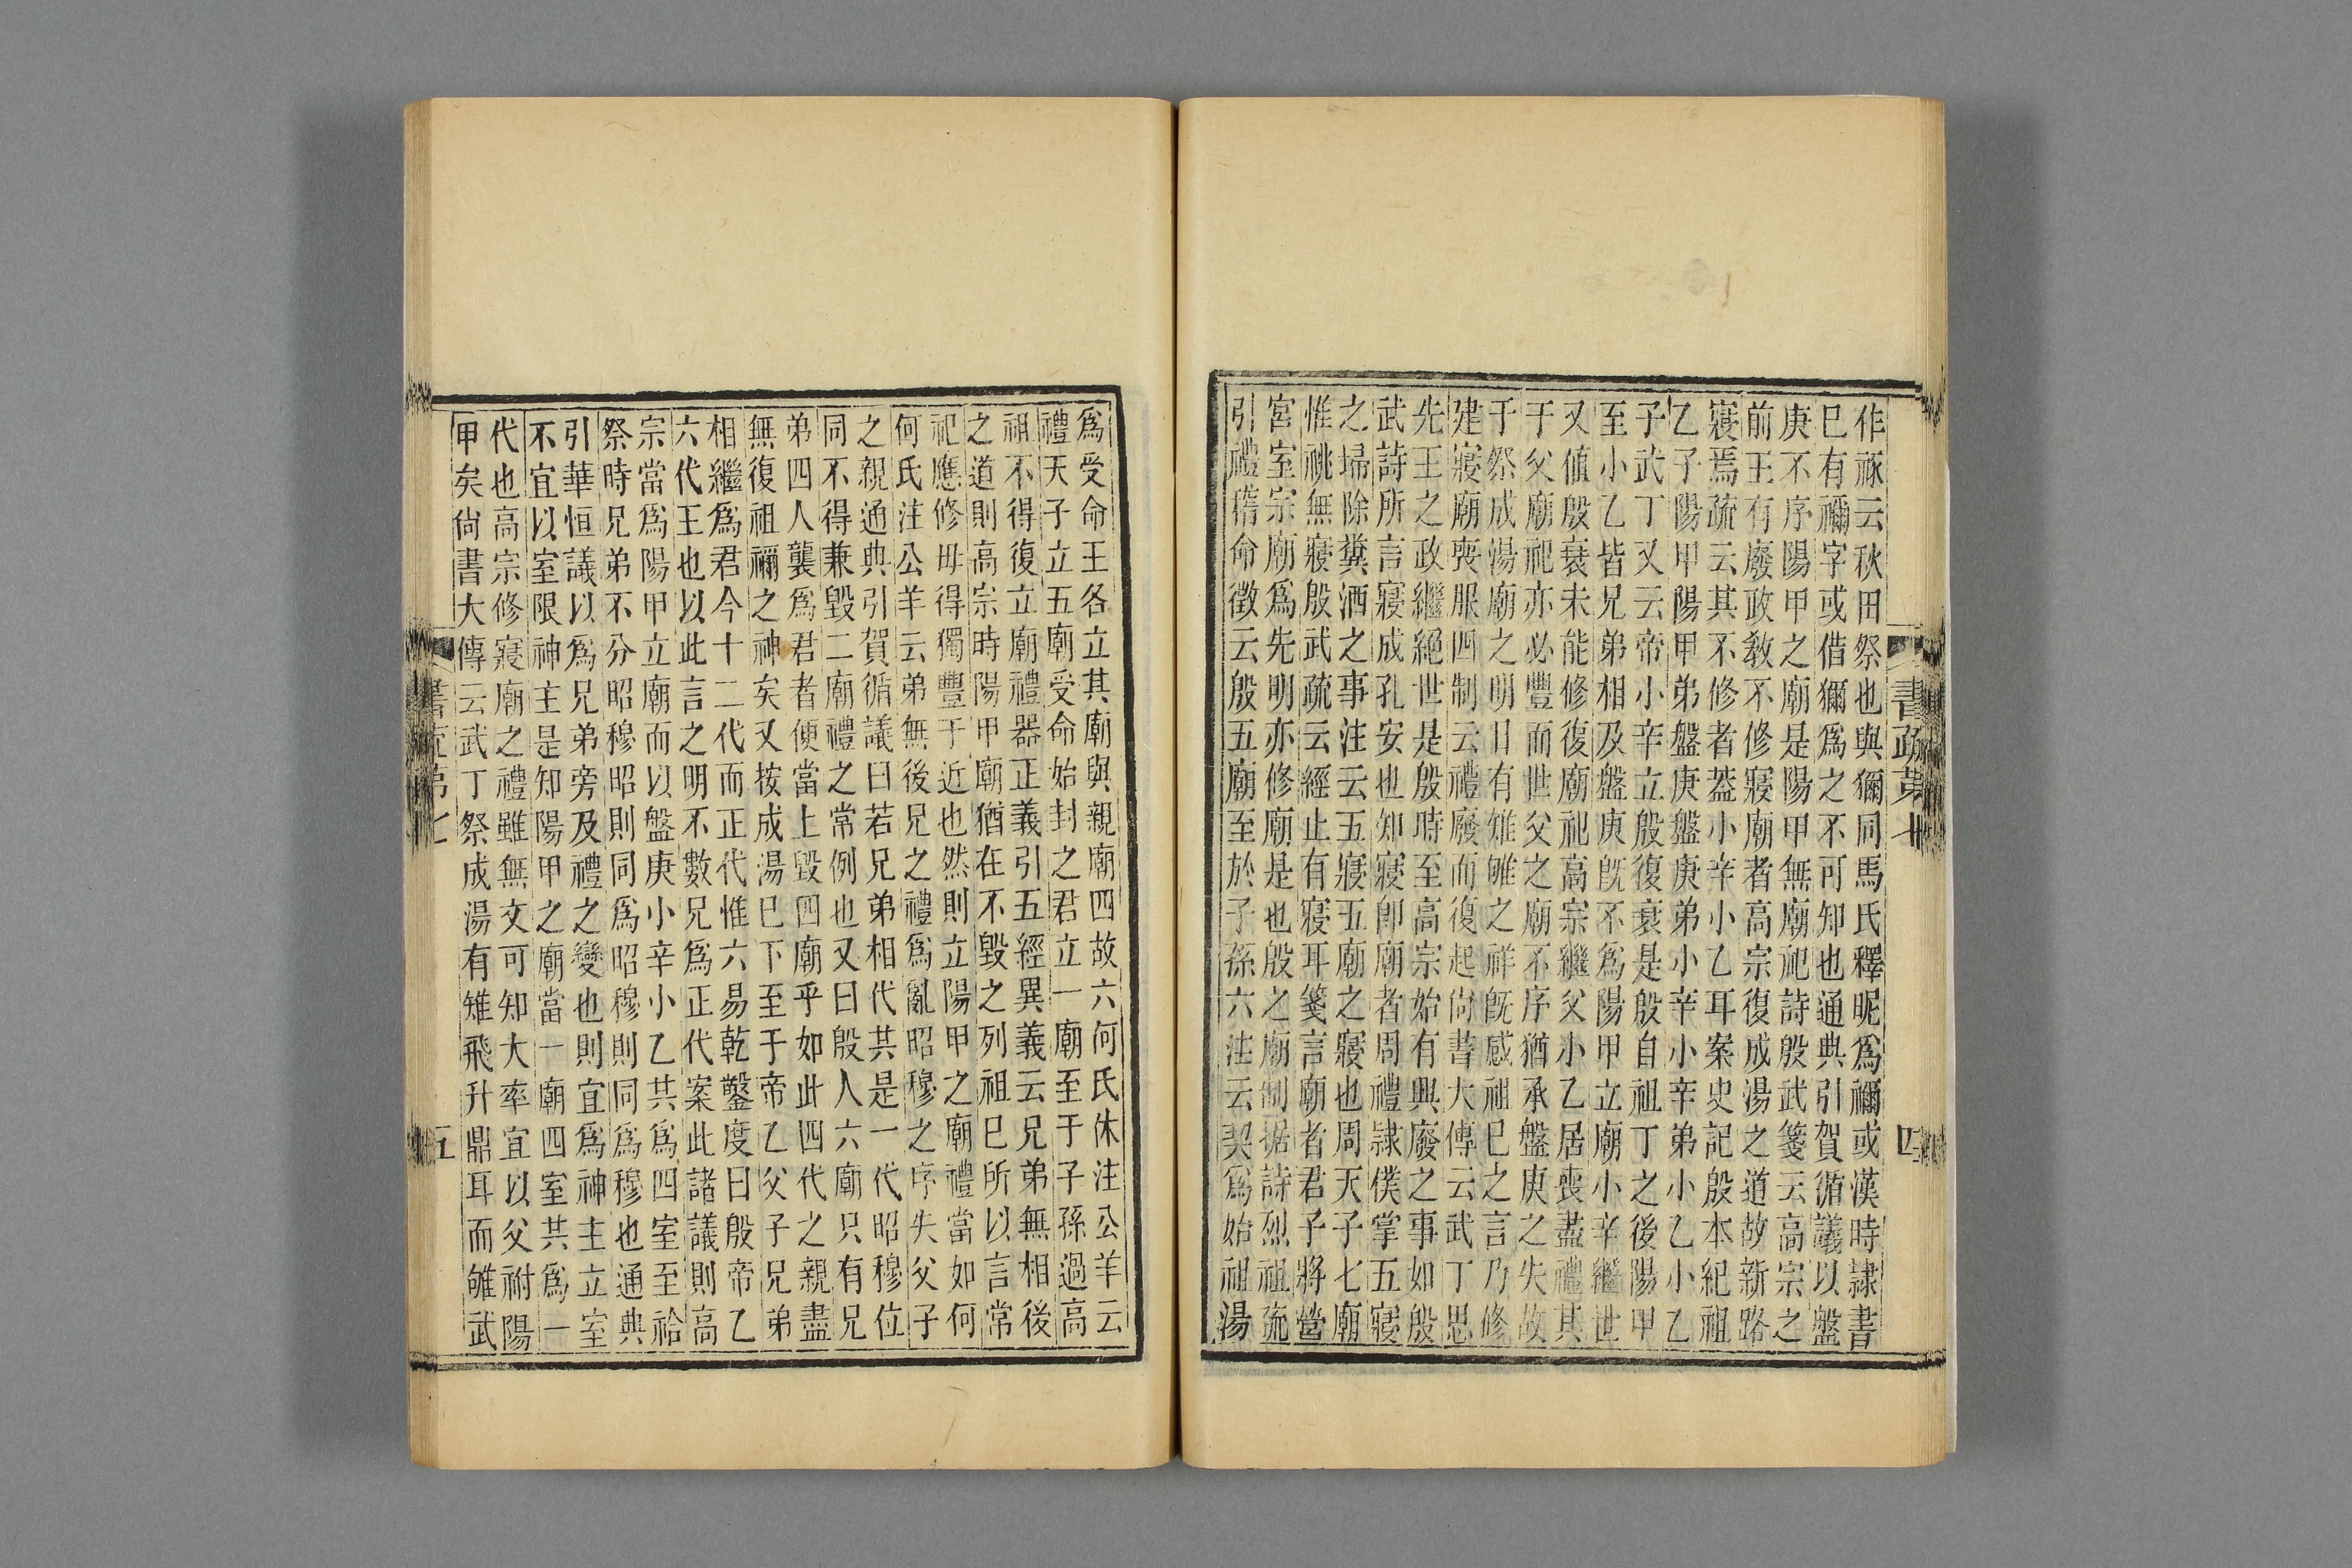 作禰云秋田祭也與獮同馬氏釋昵爲禰或漢時隷書
巳有禰字或借獮爲之不可知也通典引賀循議以盤
庚不序陽甲之廟是陽甲無廟祀詩殷武箋云高宗之
前王有廢政敎不修寢廟者高宗復成湯之道故新路
寢焉疏云其不修者葢小辛小乙耳案史記殷本紀祖
乙子陽甲陽甲弟盤庚盤庚弟小辛小辛弟小乙小乙
子武丁又云帝小辛立殷復衰是殷自祖丁之後陽甲
至小乙皆兄弟相及盤庚旣不爲陽甲立廟小辛繼世
又値殷衰未能修復廟祀高宗繼父小乙居喪盡禮其
于父廟祀亦必豐而世父之廟不序猶承盤庚之失故
于祭成湯廟之明日有雉雊之祥旣感祖巳之言乃修
建寢廟喪服四制云禮廢而復起尙書大傳云武丁思
先王之政繼絕世是殷時至高宗始有興廢之事如殷
武詩所言寢成孔安也知寢卽廟者周禮隷僕掌五寢
之埽除糞洒之事注云五寢五廟之寢也周天子七廟
惟祧無寢殷武疏云經止有寢耳箋言廟者君子將營
宮室宗廟爲先明亦修廟是也殷之廟制据詩烈祖疏
引禮稽命徵云殷五廟至於子孫六注云契爲始祖湯
書疏第七
四
爲受命王各立其廟與親廟四故六何氏休注公羊云
禮天子立五廟受命始封之君立一廟至于子孫過高
祖不得復立廟禮器正義引五經異義云兄弟無相後
之道則高宗時陽甲廟猶在不毀之列祖巳所以言常
祀應修毋得獨豐于近也然則立陽甲之廟禮當如何
何氏注公羊云弟無後兄之禮爲亂昭穆之序失父子
之親通典引賀循議曰若兄弟相代其是一代昭穆位
同不得兼毀二廟禮之常例也又曰殷人六廟只有兄
弟四人襲爲君者便當上毀四廟乎如此四代之親盡
無復祖禰之神矣又按成湯巳下至于帝乙父子兄弟
相繼爲君今十二代而正代惟六易乾鑿度曰殷帝乙
六代王也以此言之明不數兄爲正代案此諸議則高
宗當爲陽甲立廟而以盤庚小辛小乙共爲四室至祫
祭時兄弟不分昭穆昭則同爲昭穆則同爲穆也通典
引華恒議以爲兄弟旁及禮之變也則宜爲神主立室
不宜以室限神主是知陽甲之廟當一廟四室共爲一
代也高宗修寢廟之禮雖無文可知大率宜以父祔陽
甲矣尙書大傳云武丁祭成湯有雉飛升鼎耳而雊武
書疏第七
五